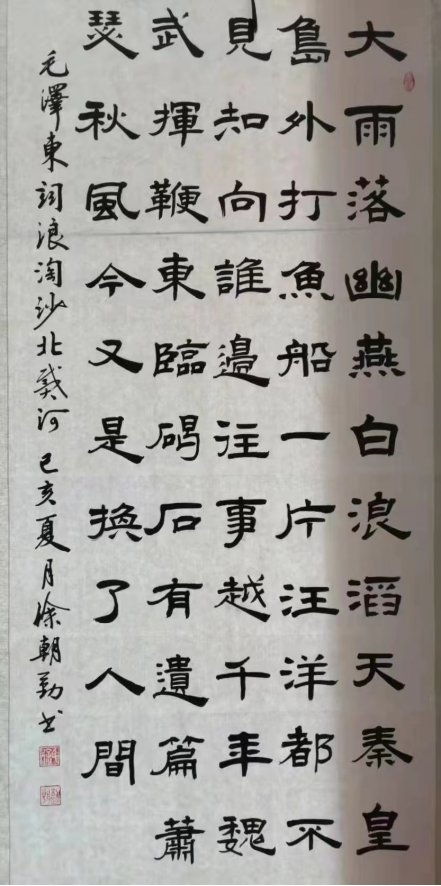 大雨落幽燕白浪滔天秦皇
島外打魚船一片汪洋都不
見知向誰邊往事越千年魏
武揮鞭東臨碣石有遺篇蕭
瑟秋風今又是換了人間
毛澤東詞浪淘沙北戴河己亥夏月徐朝勤书